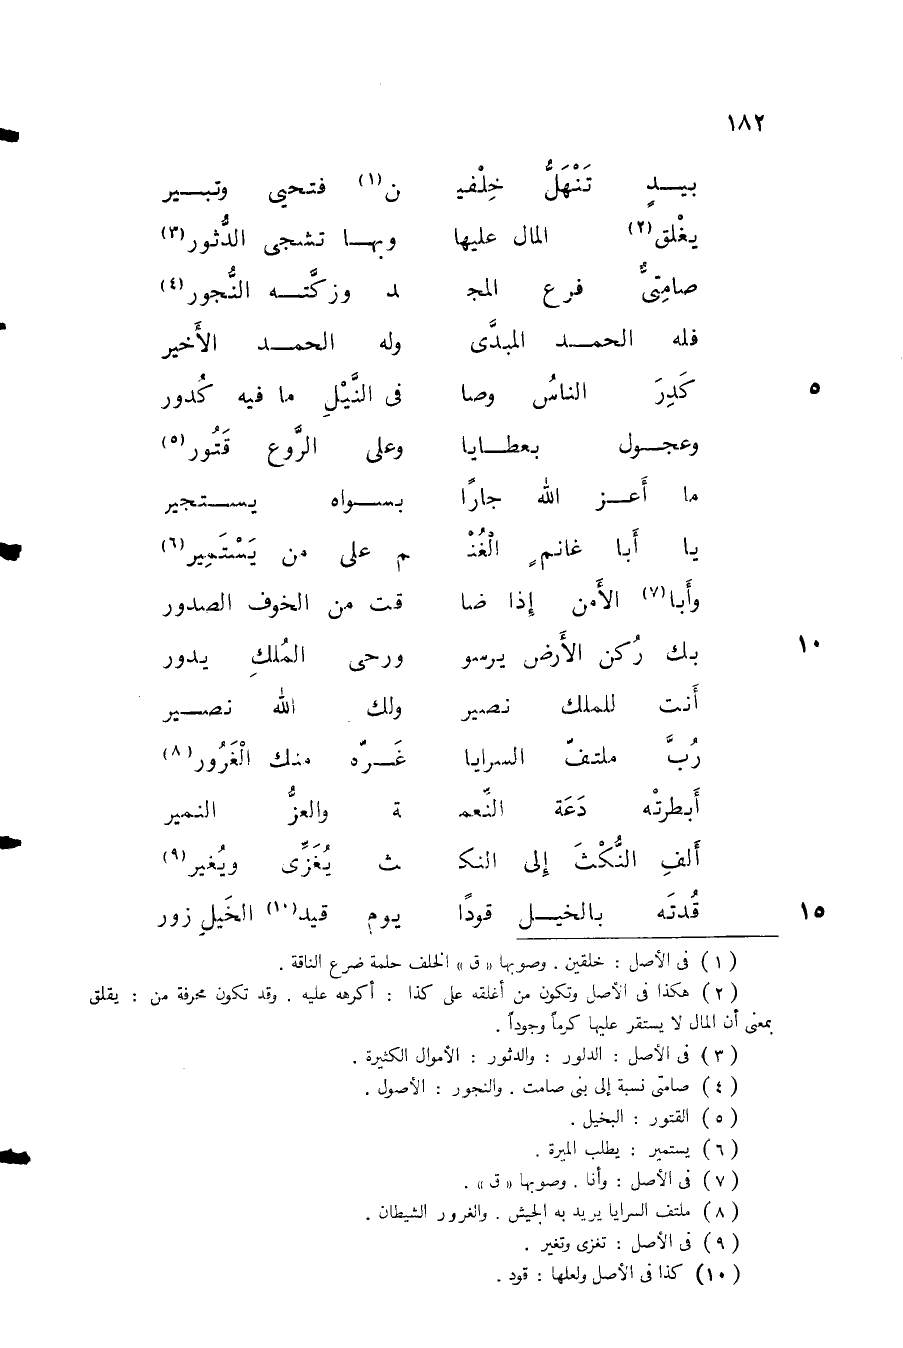 ١٨٢
بيــدٍ تَنْهَلُّ خِلْفيـ ن(١) فتحيى وتبــير
يغْلق(٢) المال عليها وبهــا تشجى الدُّثور(٣)
صامِتىٌّ فرع المجـ ـد وزكَّتــه النُّجور(٤)
فله الحمــد المبدَّى وله الحمــد الأَخير
كَدِرَ الناسُ وصا فى النَّيْلِ ما فيه كُدور ٥
وعجــول بعطــايا وعلى الرَّوع قَتُور(٥)
ما أَعــز الله جارًا بســواه يســتجير
يا أَبا غانمٍ الْغُنْـ ـم على من يَسْتَمِير(٦)
وأَبا(٧) الأَمن إِذا ضا قت من الخوف الصدور
بك رُكن الأَرض يرسو ورحى المُلكِ يدور ١٠
أَنت للملك نصير ولك الله نصــير
رُبَّ ملتفّ السرايا غَــرّه منك الْغَرُور(٨)
أَبطرتْه دَعَة النِّعمـ ـة والعزُّ النمير
أَلفِ النُّكْثَ إِلى النكـ ـث يُغَزَّى ويُغير(٩)
قُدتَه بالخيــل قودًا يوم قيد(١٠) الخَيلِ زور ١٥
(١) فى الأصل : خلقين . وصوبها «ق» الخلف حلمة ضرع الناقة .
(٢) هكذا فى الأصل وتكون من أغلقه على كذا : أكرهه عليه . وقد تكون محرفة من : يقلق
بمعنى أن المال لا يستقر عليها كرماً وجوداً .
(٣) فى الأصل : الدلور : والدثور : الأموال الكثيرة .
(٤) صامتى نسبة إلى بنى صامت . والنجور : الأصول .
(٥) القتور : البخيل .
(٦) يستمير : يطلب الميرة .
(٧) فى الأصل : وأنا . وصوبها «ق» .
(٨) ملتف السرايا يريد به الجيش . والغرور الشيطان .
(٩) فى الأصل : تغزى وتغير .
(١٠) كذا فى الأصل ولعلها : قود .